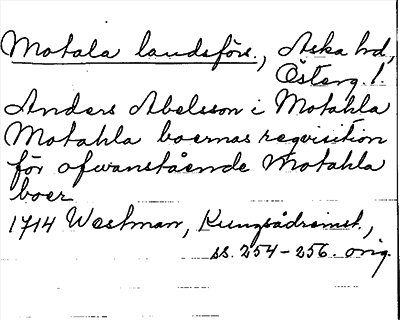 Motala landsförs., Aska hd.,
Österg. l.
Anders Abelsson i Motahla
Motahla boernas reqvisition
för ofwanstående Motahla
boer
1714 Westman, Kungsådreinst.,
ss. 254-256. orig.